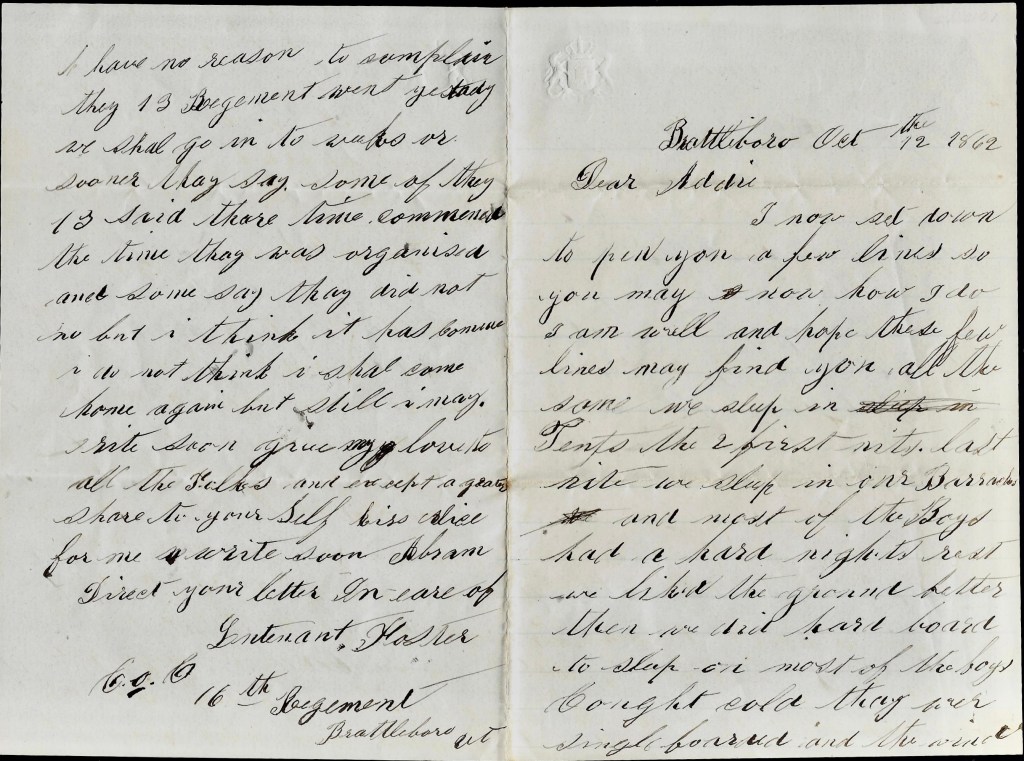 Brattleboro Oct the 12 1862
Dear Addie
I now set down
to pen you a few lines so
you may now how I do
I am well and hope these few
lines may find you all the
same we sleep in sleep in
Tents the 2 first nits. last
nite we sleep in our Barracks
and most of the Boys
had a hard nights rest
we liked the ground better
then we did hard board
to sleep on most of the boys
Cought cold thay wer
single boarned and the wind
I have no reason to complain
they 13 Regement went yestady
we shal go in to weaks or
sooner thay say. some of they
13 said thare time commenced
the time thay was organised
and some say thay did not
no but i think it has
i do not think i shal come
home again but still i may.
rite soon give my love to
all the Folks and except a
share to your Self kiss Alice
for me write soon Abram
Direct your letter In care of
Leutenant, Foster
Co. C
16th Regement
Brattleboro vt